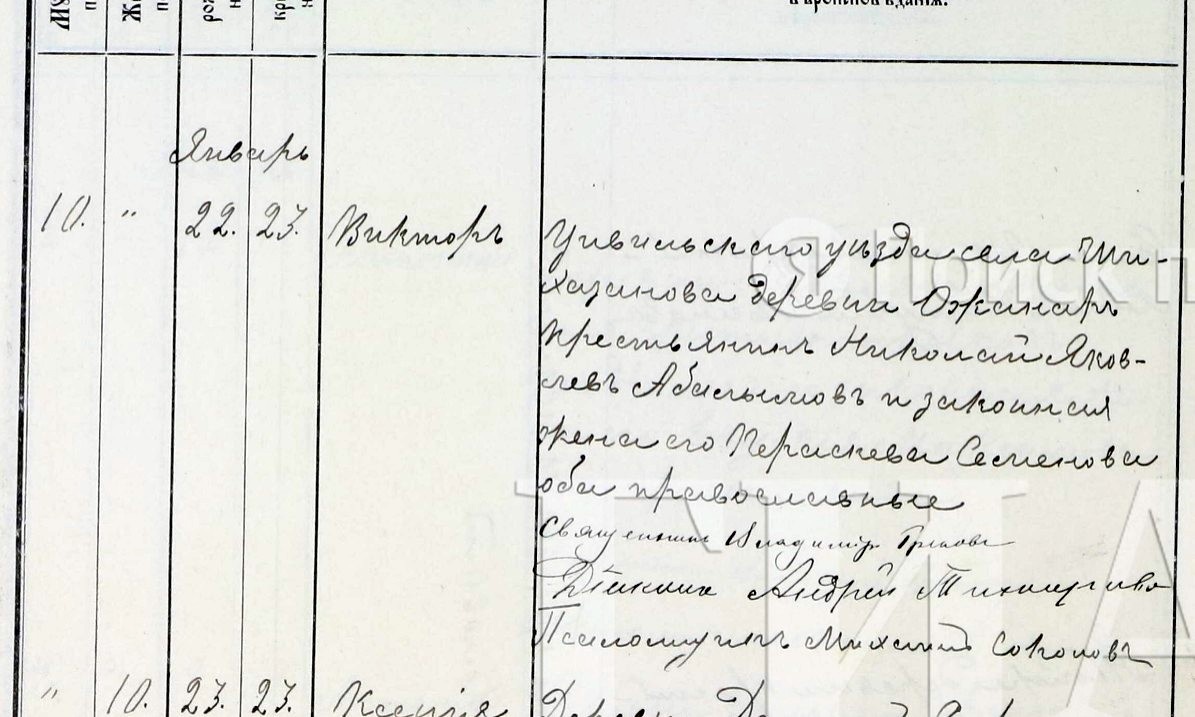 и времянов вданіж.
Январь
10. " 22. 23. Викторъ Цивильскаго уѣзда села Ши-
хазанова деревни Ожанаръ
крестьянинъ Николай Яков-
левъ Абалымовъ и законная
жена его Параскева Семенова
оба православные
Священникъ Владиміръ Громовъ
Діаконъ Андрей
Псаломщикъ Михаилъ Соколовъ
" 10. 23. 23. Ксенія